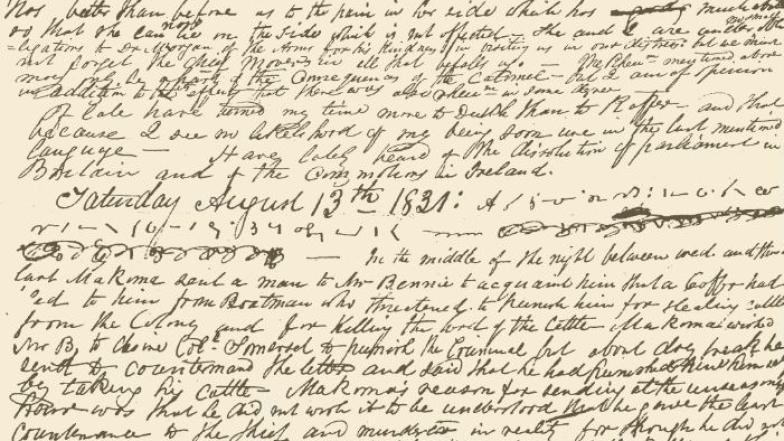 Nos better than before as to the pain in her side which has much about
so that she can now lie on the side which is not affected — She and I are under
ligations to Dr Morgan of the Arms for his kindness in visiting us in our distress but we must
not forget the Great Mover in all that befalls us. — The mentioned above
may only be a part of the Consequences of the Calomel — but I am of opinion
in addition to the effects that there was also in some degree —
Of late have turned my time more to Dutch than to Kaffer — and that
because I see no likelihood of my being soon use in the last mentioned
language — Have lately heard of the dissolution of parliament in
Britain and of the Commotions in Ireland.
Saturday August 13th 1831:
— In the middle of the night between wed. and thurs
last Makoma sent a man to Mr Bennie to acquaint him that a Caffer had
'ed to him from Boatman who threatened to punish him for stealing cattle
from the Colony and for killing the of the Cattle — Makoma
Mr B. to Col. Somerset to punish the Criminal but about day break he
sent to countermand the letter and said that he had punished him himself
by taking his cattle — Makoma's reason for sending at the unseasonable
hour was that he did not wish it to be understood that he gave the least
Countenance to the thief and murderer in reality for though he did